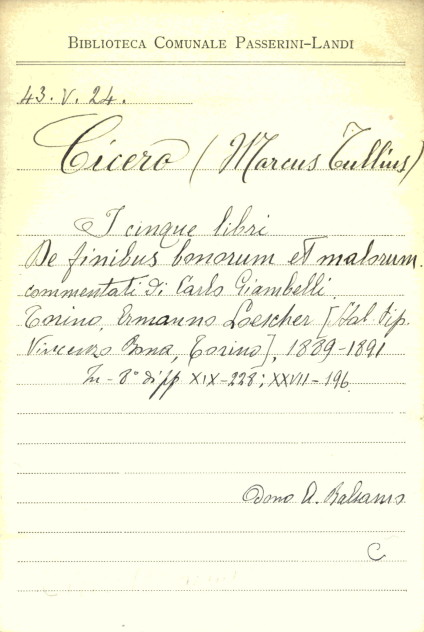 BIBLIOTECA COMUNALE PASSERINI-LANDI
43. V. 24.
Cicero (Marcus Tullius)
I cinque libri
De finibus bonorum et malorum
commentati di Carlo Giambelli.
Torino, Ermanno Loescher [Stal. tip.
Vincenzo Bona, Torino], 1889-1891
In-8° di pp XIX-228; XXVII-196.
Dono A. Balsamo
C